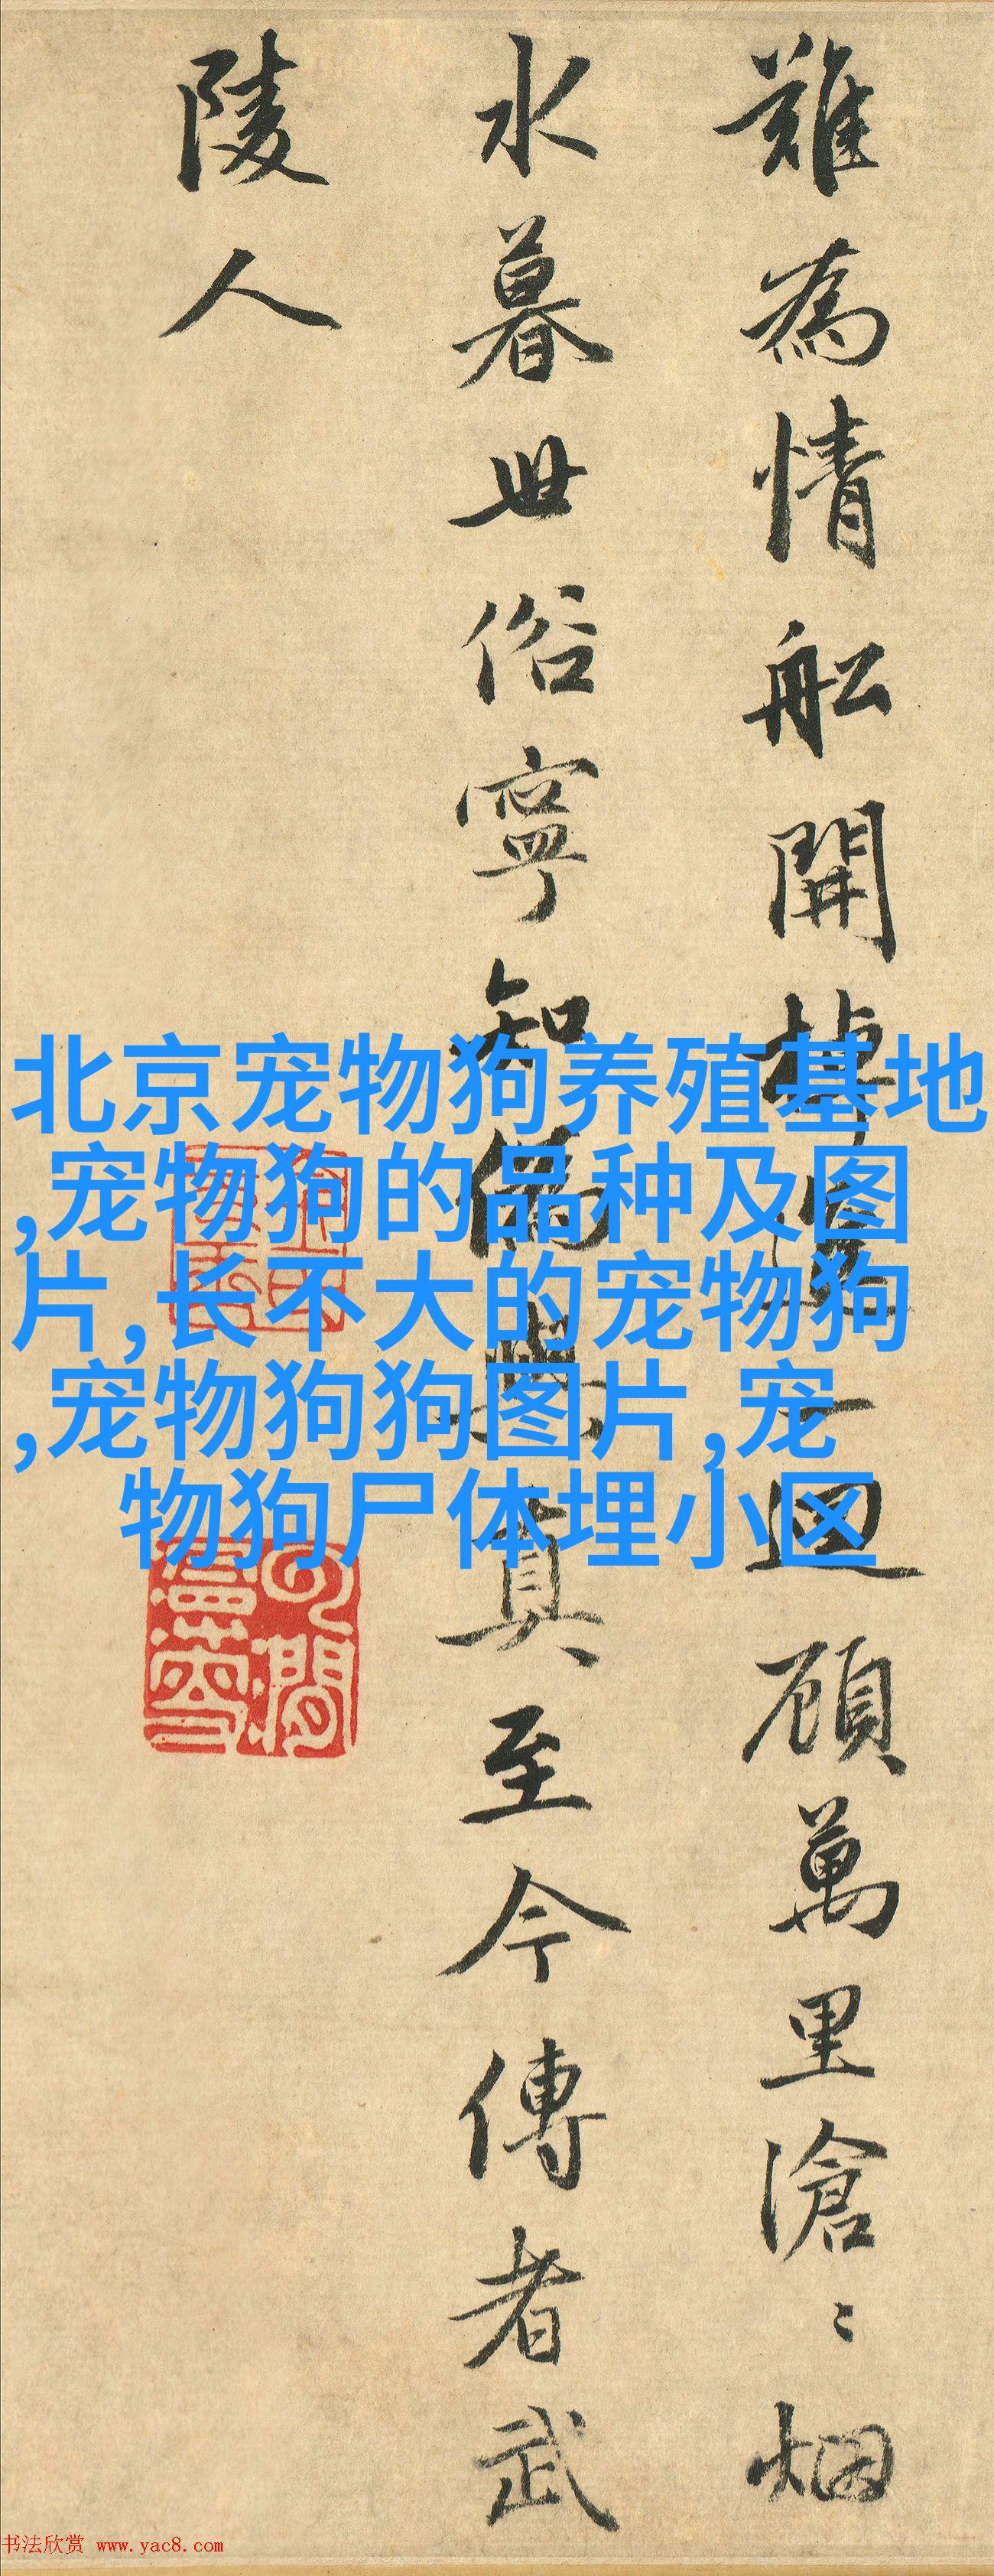 難為情舩開棹進一迴顧萬里滄〻烟
水暮世俗寧知偽與真至今傳者武
陵人
北京宠物狗养殖基地
,宠物狗的品种及图
片,长不大的宠物狗
,宠物狗狗图片,宠
物狗尸体埋小区
书法欣赏 www.yac8.com